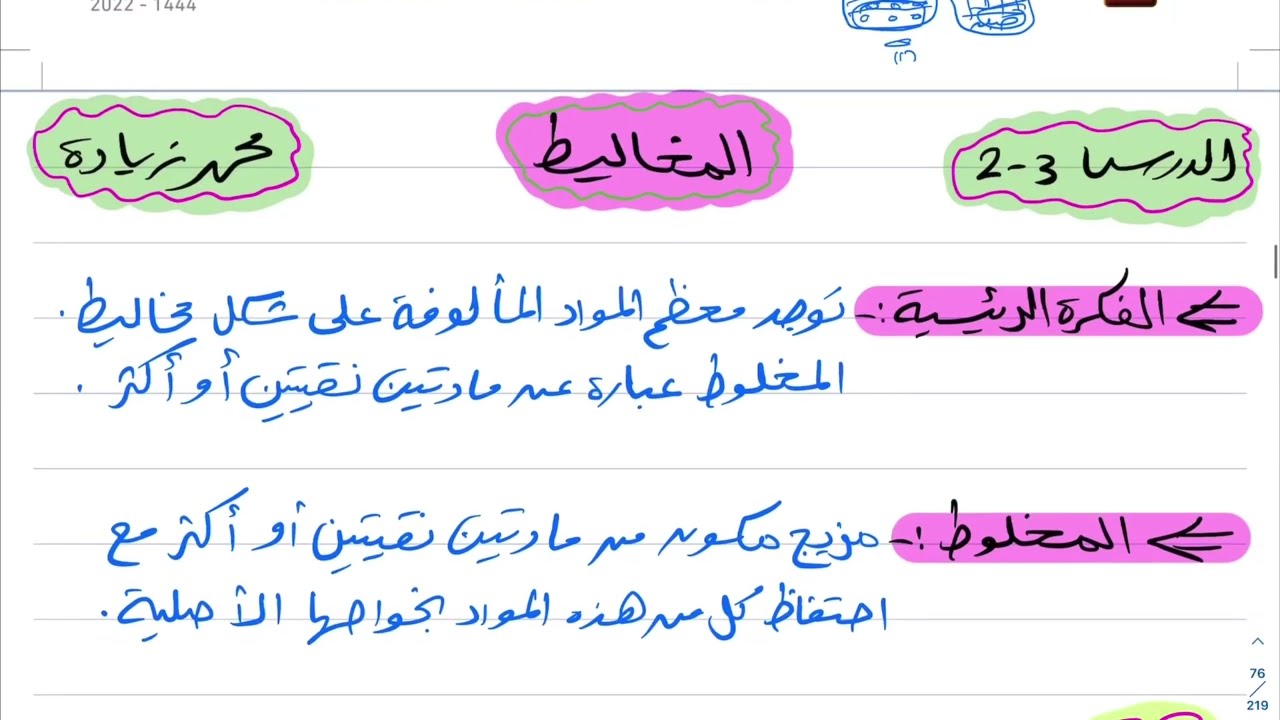 2022 - 1444
الدرس 3-2
المخاليط
محمد زيادة
الفكرة الرئيسية :- توجد معظم المواد المألوفة على شكل مخاليط .
المخلوط عبارة عن مادتين نقيتين أو أكثر .
المخلوط :- مزيج مكون من مادتين نقيتين أو أكثر مع
احتفاظ كل من هذه المواد بخواصها الأصلية .
76
219